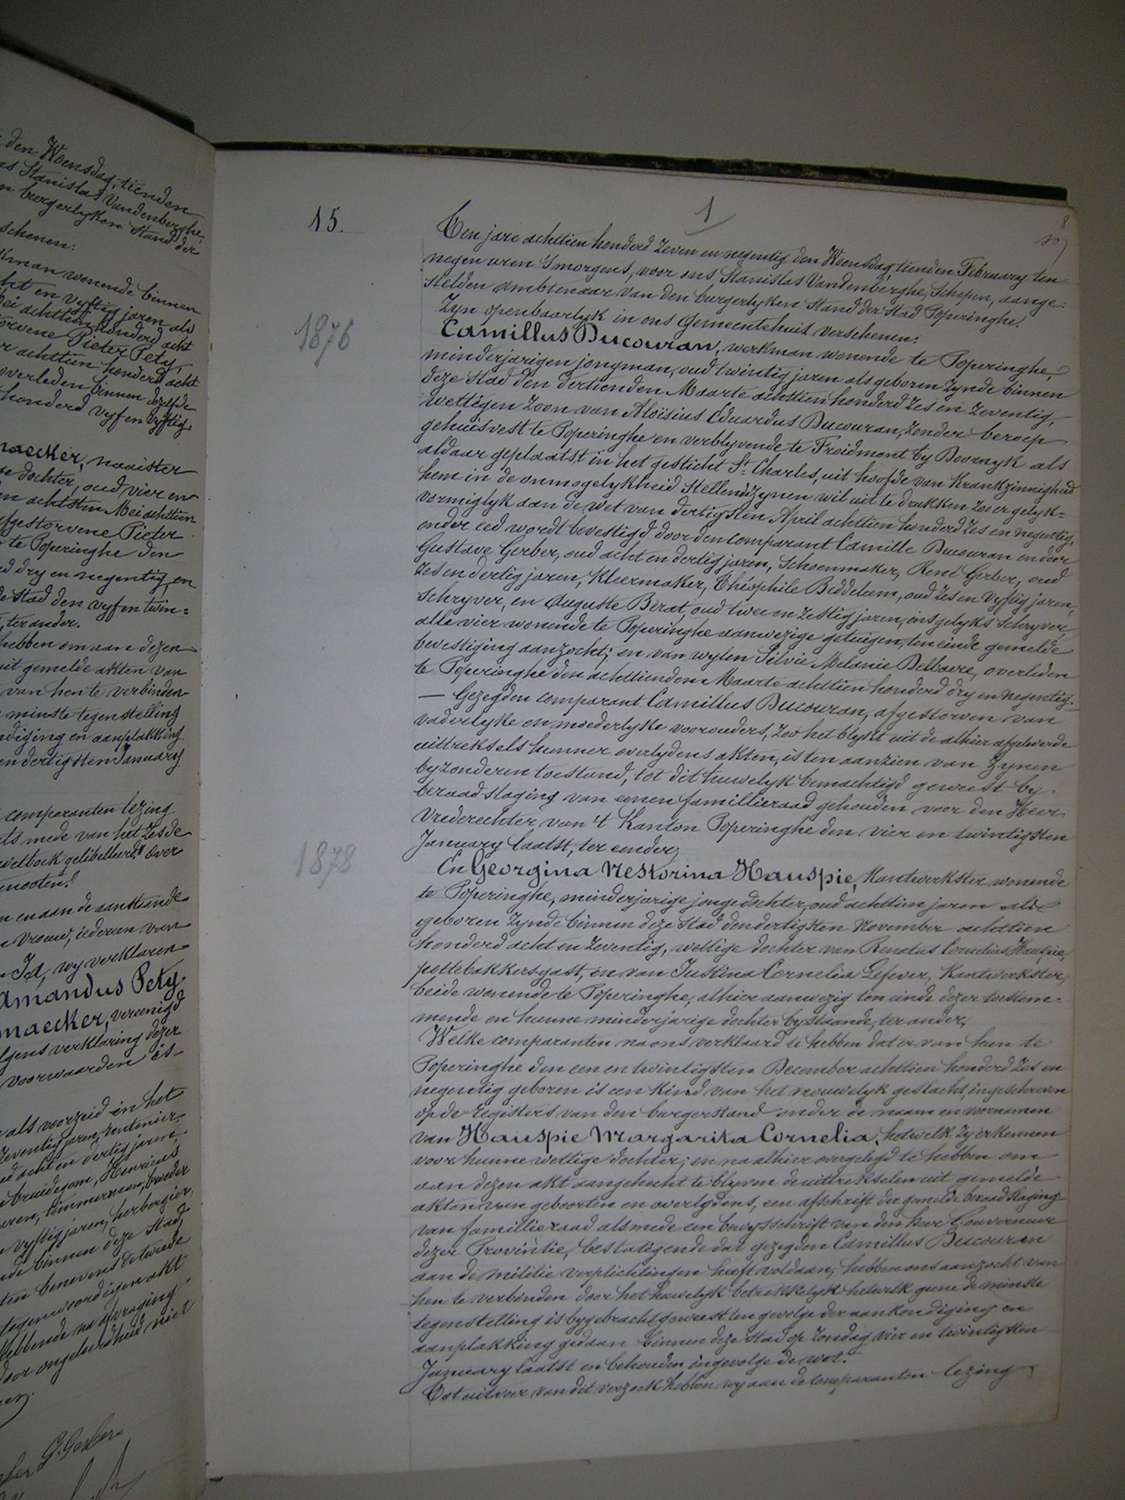 den Woensdag, tienden
Stanislas Vandenberghe,
burgerlyken Stand der
schenen:
wonende binnen
en vyftig jaren als
achttien honderd acht
Pieter Pety,
achttien honderd acht
overleden binnen dezelfde
honderd vyf en vyftig.
maecker, naaister
dochter, oud vier en
achtsten Mei achttien
afgestorvene Pieter
te Poperinghe den
dry en negentig, en
Stad den vyf en twin=
ter ander.
hebben om aan dezen
uit gemelde akten van
van hen te verbinden
minste tegenstelling
en aanplakking
en dertigsten January
comparanten lezing
als mede van het zesde
gelibelleerd over
genooten."
en aan de aanstaande
vrouw, iederen van
Ja, wy verklaren
Amandus Pety,
maecker, vereenigd
volgens verklaring dezer
voorwaarden is
als voorzeid in het
zeventig jaren, rentenier
acht en dertig jaren
bruidegom, Henricus
timmerman, broeder
vyftig jaren, herbergier
binnen deze Stad,
benevens de twede
tegenwoordigen akt
Hebbende na afvraging
door ongeleerdheid niet
G. Gerber
15.
1
8
Ten jare achttien honderd zeven en negentig den Woensdag, tienden February ten
negen uren 's morgens, voor ons Stanislas Vandenberghe, Schepen, aange=
stelden ambtenaar van den burgerlyken Stand der Stad Poperinghe.
Zyn openbaarlyk in ons Gemeentehuis verschenen:
1876
Camillus Ducouran, werkman wonende te Poperinghe,
minderjarigen jongman, oud twintig jaren als geboren zynde binnen
deze Stad den dertienden Maarte achttien honderd zes en zeventig,
wettigen zoon van Aloisius Eduardus Ducouran, zonder beroep
gehuisvest te Poperinghe en verblyvende te Froidmont by Doornyk als
aldaar geplaatst in het gesticht St Charles, uit hoofde van Krankzinnigheid
hem in de onmogelykheid stellende zynen wil uit te drukken zoo er gelyk=
vormiglyk aan de wet van dertigsten April achttien honderd zes en negentig,
onder eed wordt bevestigd door den comparant Camille Ducouran en door
Gustave Gerber, oud acht en dertig jaren, Schoenmaker, René Gerber, oud
zes en dertig jaren, Kleermaker, Théophile Biddelum, oud zes en vyftig jaren,
Schryver, en Auguste Berat, oud twee en zestig jaren, insgelyks Schryver,
alle vier wonende te Poperinghe aanwezige getuigen, ten einde gemelde
bevestiging aanzocht; en van wylen Silvie Melanie Delbaere, overleden
te Poperinghe den achttienden Maarte achttien honderd dry en negentig.
— Gezegden comparant Camillus Ducouran, afgestorven van
vaderlyke en moederlyke voorouders, zoo het blykt uit de alhier afgeleverde
uittreksels hunner overlydens akten, is ten aanzien van zynen
byzonderen toestand, tot dit huwelyk bemachtigd geweest by
beraadslaging van eenen familieraad gehouden voor den Heer
Vrederechter van 't Kanton Poperinghe den vier en twintigsten
January laatst, ter eender;
1878
En Georgina Nestorina Hauspie, Kantwerkster wonende
te Poperinghe, minderjarige jonge dochter, oud achttien jaren als
geboren zynde binnen deze Stad den dertigsten November achttien
honderd acht en zeventig, wettige dochter van Renatus Cornelius Hauspie,
pottebakkersgast, en van Justina Cornelia Lefever, Kantwerkster,
beide wonende te Poperinghe, alhier aanwezig ten einde dezer toestem=
mende en hunne minderjarige dochter bystaande, ter ander.
Welke comparanten na ons verklaard te hebben dat er van hun te
Poperinghe den een en twintigsten December achttien honderd zes en
negentig geboren is een kind van het vrouwelyk geslacht, ingeschreven
op de registers van den burgerstand onder de naam en voornamen
van Hauspie Margarita Cornelia, hetwelk zy erkennen
voor hunne wettige dochter; en na alhier overgelegd te hebben om
aan dezen akt aangehecht te blyven de uittrekselen uit gemelde
akten van geboorten en overlydens, een afschrift der gemelde beraadslaging
van familieraad als mede een bewysschrift van den heer Gouverneur
dezer Provintie, bestatigende dat gezegden Camillus Ducouran
aan de militie verplichtingen heeft voldaan; hebben ons aanzocht van
hen te verbinden door het huwelyk betrekkelyk hetwelk geene de minste
tegenstelling is bygebracht geweest ten gevolge der aankondiging en
aanplakking gedaan binnen deze Stad op Zondag vier en twintigsten
January laatst en behouden ingevolge de wet.
Tot uitvoer van dit verzoek hebben wy aan de comparanten lezing